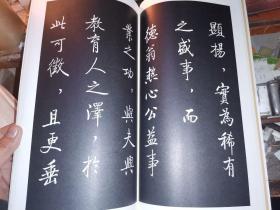 顯揚，實為稀有
之盛事，而
德翁热心公益事
業之功，與夫興
教育人之澤，於
此可徵，且更垂